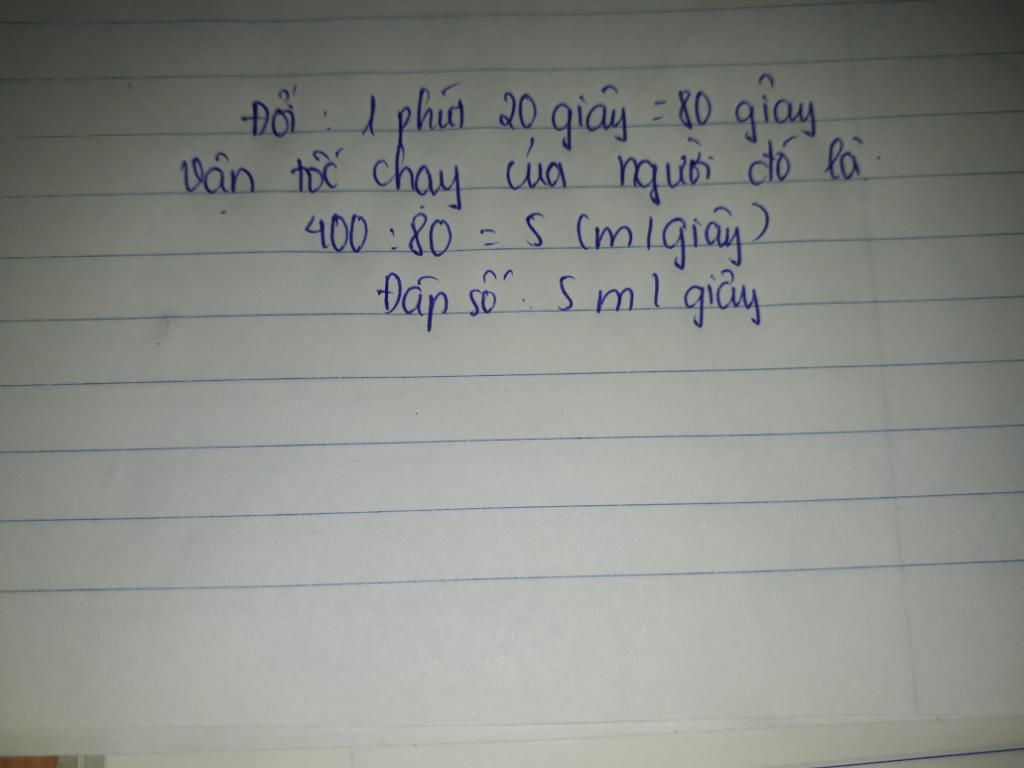 Đổi : 1 phút 20 giây = 80 giây
Vận tốc chạy của người đó là :
400 : 80 = 5 (m/giây)
Đáp số : 5 m/giây